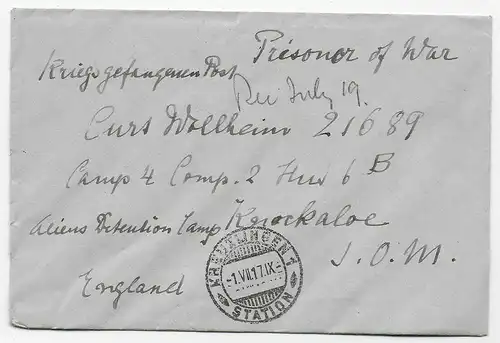 Prisoner of War
Kriegsgefangenen Post
Rec July 19.
Curt Wollheim 21689
Camp 4 Comp. 2 Hut 6 B
Aliens Detention Camp Knockaloe
I.O.M.
England
KREUZLINGEN 1
-1.VII.17.IX-
STATION